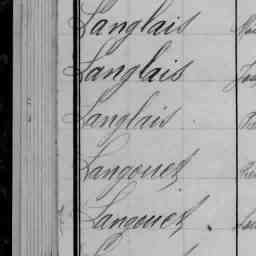 Langlais
Langlais
Langlais
Langouet
Langouet